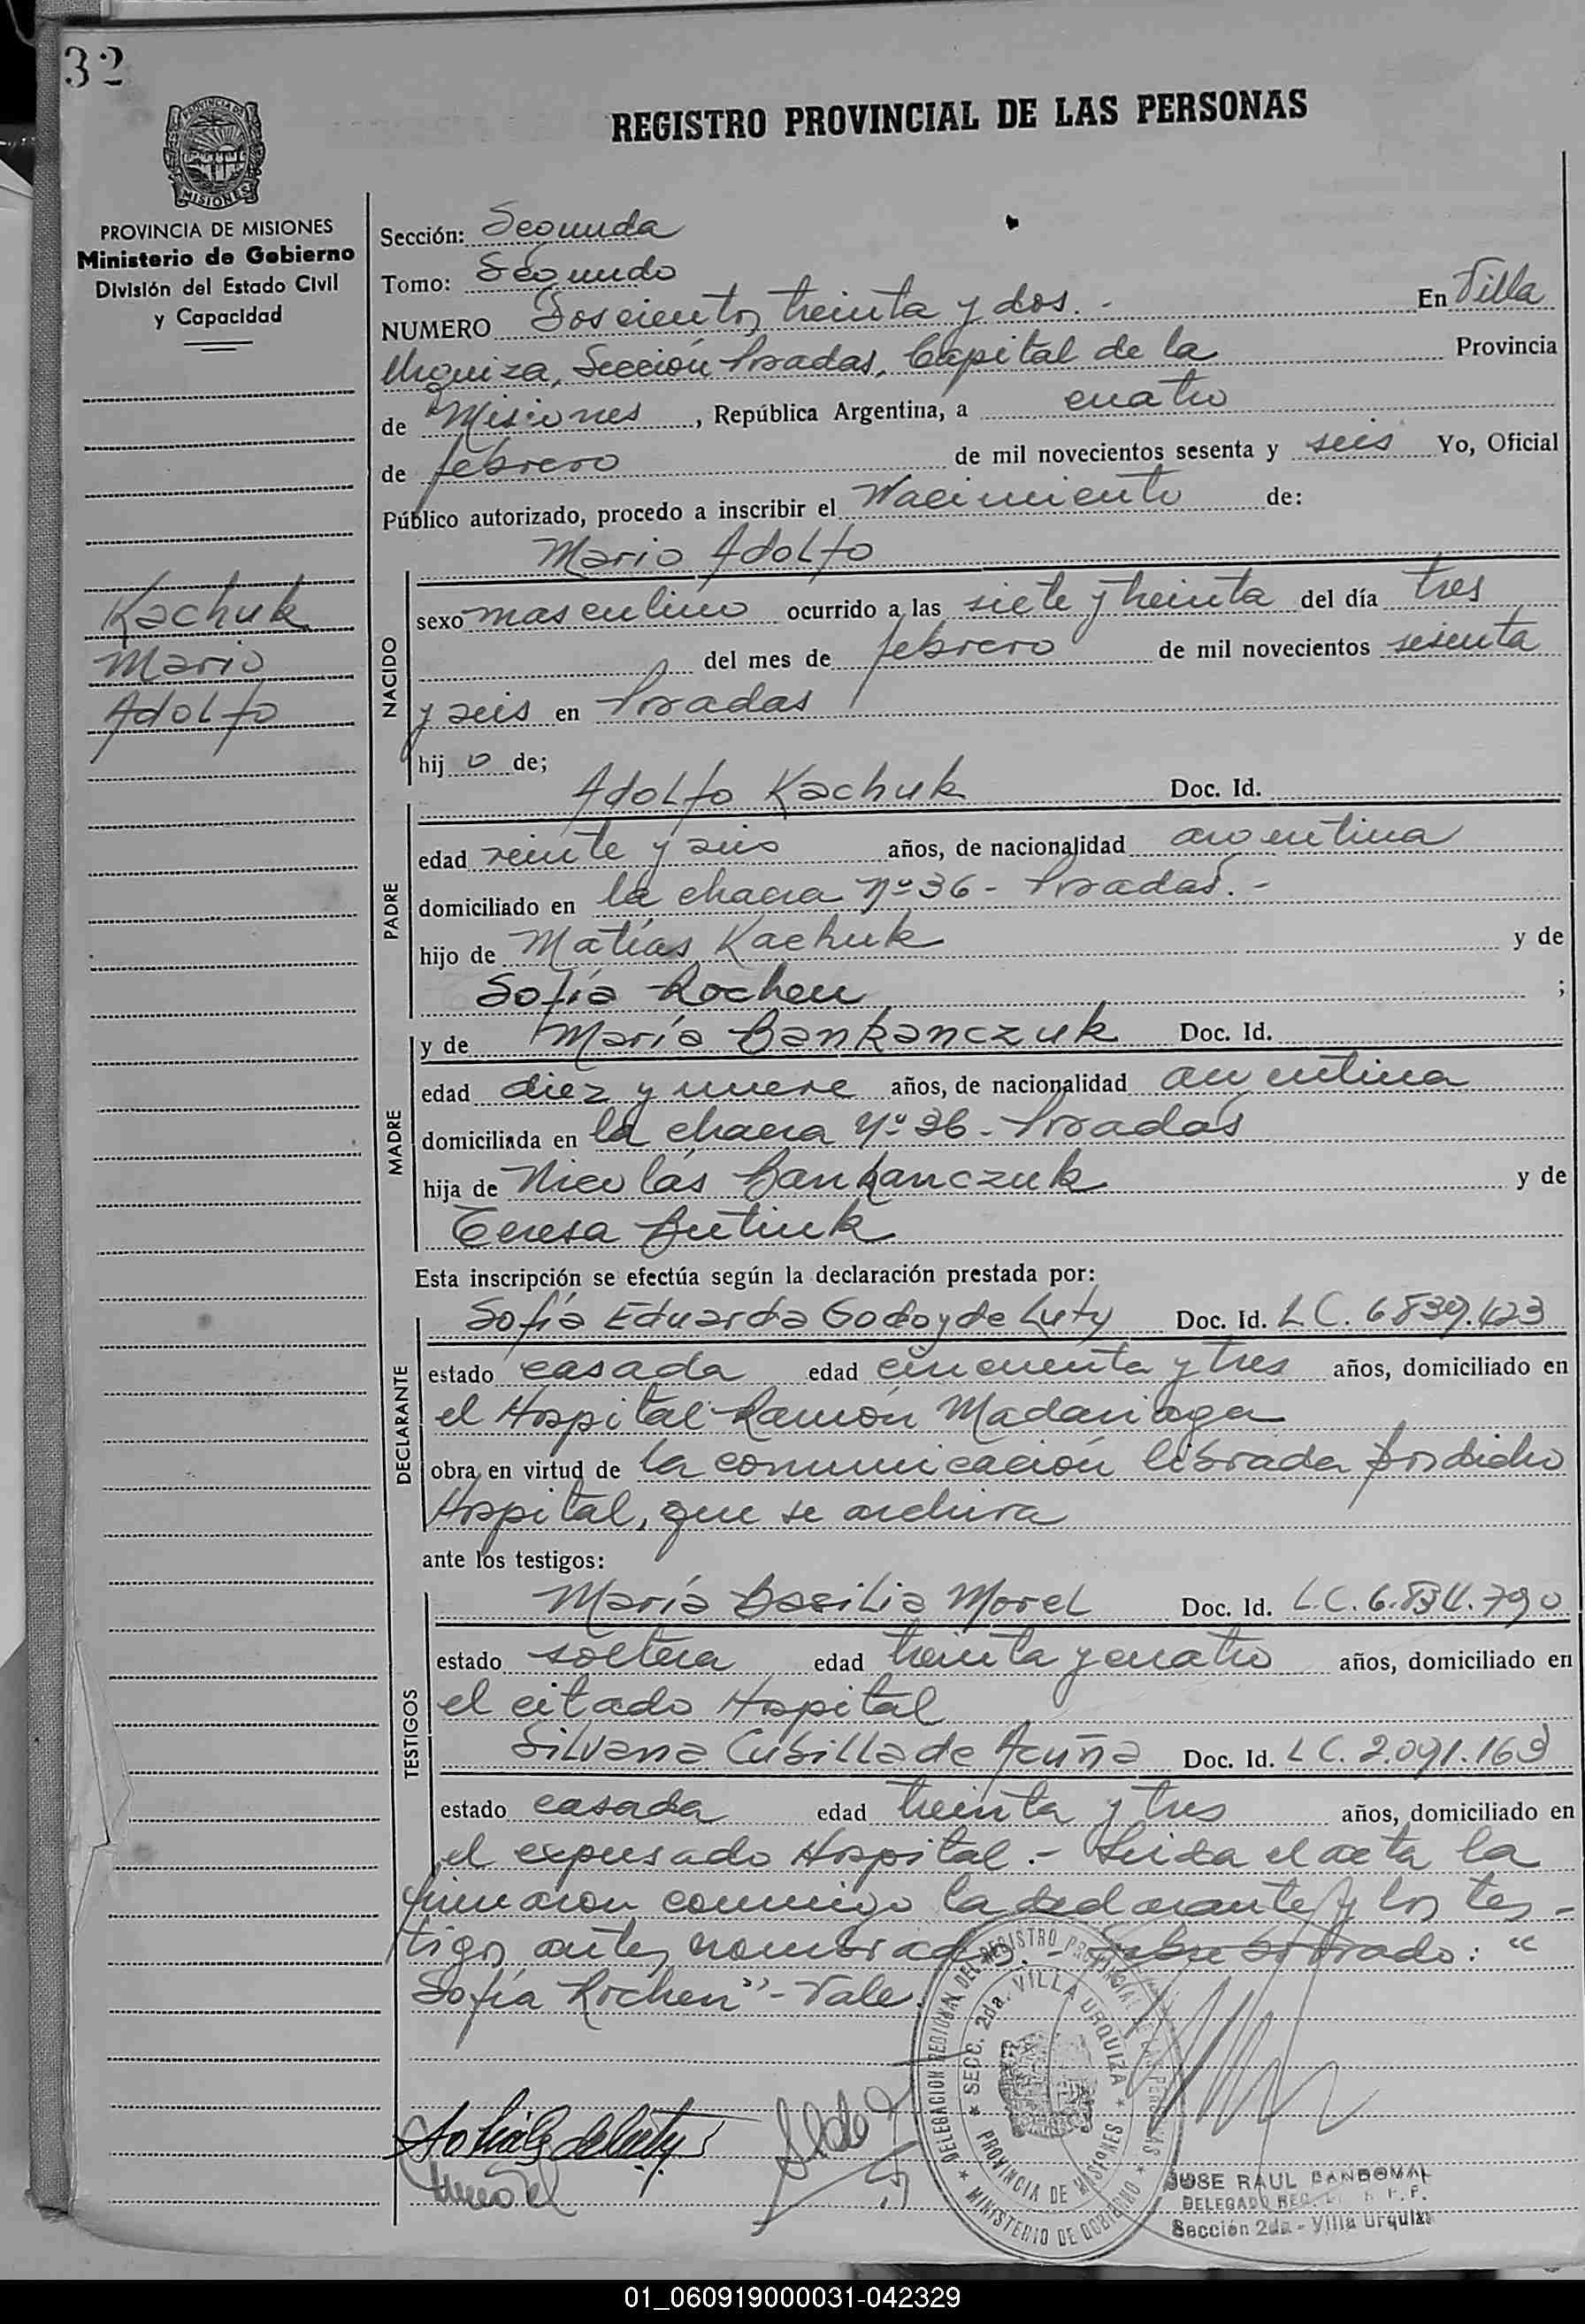 32
REGISTRO PROVINCIAL DE LAS PERSONAS
PROVINCIA DE MISIONES
PROVINCIA DE MISIONES
Ministerio de Gobierno
División del Estado Civil
y Capacidad
Kachuk
Mario
Adolfo
Sección: Segunda
Tomo: Segundo
NUMERO Doscientos treinta y dos. - En Villa
Urquiza, Sección Posadas, Capital de la Provincia
de Misiones, República Argentina, a cuatro
de febrero de mil novecientos sesenta y seis Yo, Oficial
Público autorizado, procedo a inscribir el Nacimiento de:
Mario Adolfo
NACIDO
sexo masculino ocurrido a las siete y treinta del día tres
del mes de febrero de mil novecientos sesenta
y seis en Posadas
hij o de;
PADRE
Adolfo Kachuk Doc. Id.
edad veinte y seis años, de nacionalidad argentina
domiciliado en la chacra Nº 36 - Posadas. -
hijo de Matías Kachuk y de
Sofía Rochen ;
MADRE
y de María Bankanczuk Doc. Id.
edad diez y nueve años, de nacionalidad argentina
domiciliada en la chacra Nº 36 - Posadas
hija de Nicolás Bankanczuk y de
Teresa Butiuk
Esta inscripción se efectúa según la declaración prestada por:
DECLARANTE
Sofía Eduarda Godoy de Luty Doc. Id. L C. 6839.423
estado casada edad cincuenta y tres años, domiciliado en
el Hospital Ramón Madariaga
obra en virtud de la comunicación librada por dicho
Hospital, que se archiva
ante los testigos:
TESTIGOS
María Basilia Morel Doc. Id. L.C. 6.834.790
estado soltera edad treinta y cuatro años, domiciliado en
el citado Hospital
Silvana Cubilla de Acuña Doc. Id. L C. 2.091.163
estado casada edad treinta y tres años, domiciliado en
el expresado Hospital. - Leída el acta la
firmaron conmigo la declarante y los tes-
tigos antes nombrados. - Sobre borrado: "
Sofía Rochen" - Vale.
DELEGACION REGIONAL DEL REGISTRO PROVINCIAL DE LAS PERSONAS
SECC. 2da. VILLA URQUIZA
PROVINCIA DE MISIONES
MINISTERIO DE GOBIERNO
JOSE RAUL SANDOVAL
DELEGADO REG.
Sección 2da - Villa Urquiza
01_060919000031-042329